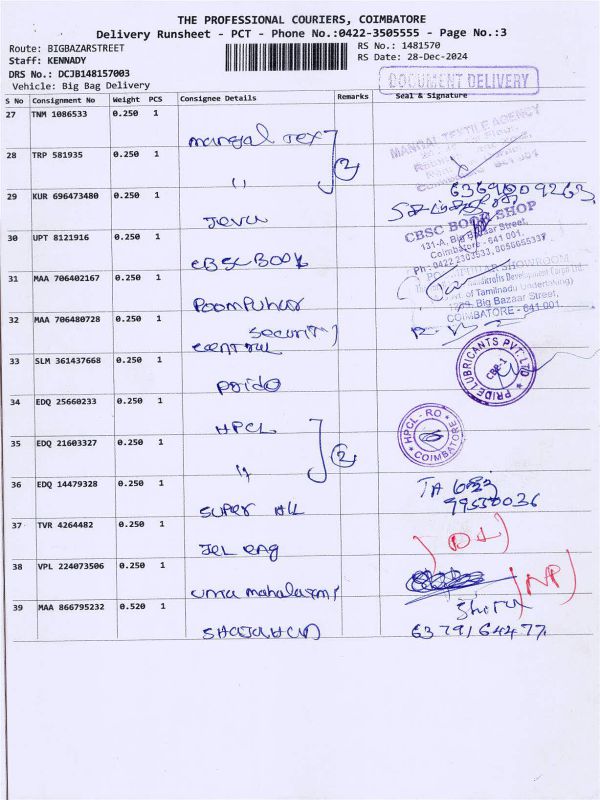 THE PROFESSIONAL COURIERS, COIMBATORE
Delivery Runsheet - PCT - Phone No.:0422-3505555 - Page No.:3
Route: BIGBAZARSTREET
RS No.: 1481570
Staff: KENNADY
RS Date: 28-Dec-2024
DRS No.: DCJB148157003
Vehicle: Big Bag Delivery
DOCUMENT DELIVERY
S No Consignment No Weight PCS Consignee Details Remarks Seal & Signature
27 TNM 1086533 0.250 1
mangal Tex
MANGAL TEXTILE AGENCY
28 TRP 581935 0.250 1
" 2
29 KUR 696473480 0.250 1
6369109263
CBSC BOOK SHOP
131-A, Big Bazaar Street,
Coimbatore - 641 001.
30 UPT 8121916 0.250 1
CBSC BOOK
Ph: 0422 2303533, 8056655337
31 MAA 706402167 0.250 1
Poompuhar
SHOWROOM
of Tamilnadu Undertaking)
Big Bazaar Street,
COIMBATORE - 641 001.
32 MAA 706480728 0.250 1
security
central
33 SLM 361437668 0.250 1
pride
PRIDE LUBRICANTS PVT. LTD
CBE-1
34 EDQ 25660233 0.250 1
HPCL
HPCL - RO
COIMBATORE
35 EDQ 21603327 0.250 1
" 2
36 EDQ 14479328 0.250 1
super
99550036
37 TVR 4264482 0.250 1
38 VPL 224073506 0.250 1
uma mahalaxmi
NP
39 MAA 866795232 0.520 1
SHAJAHAN
6379164477